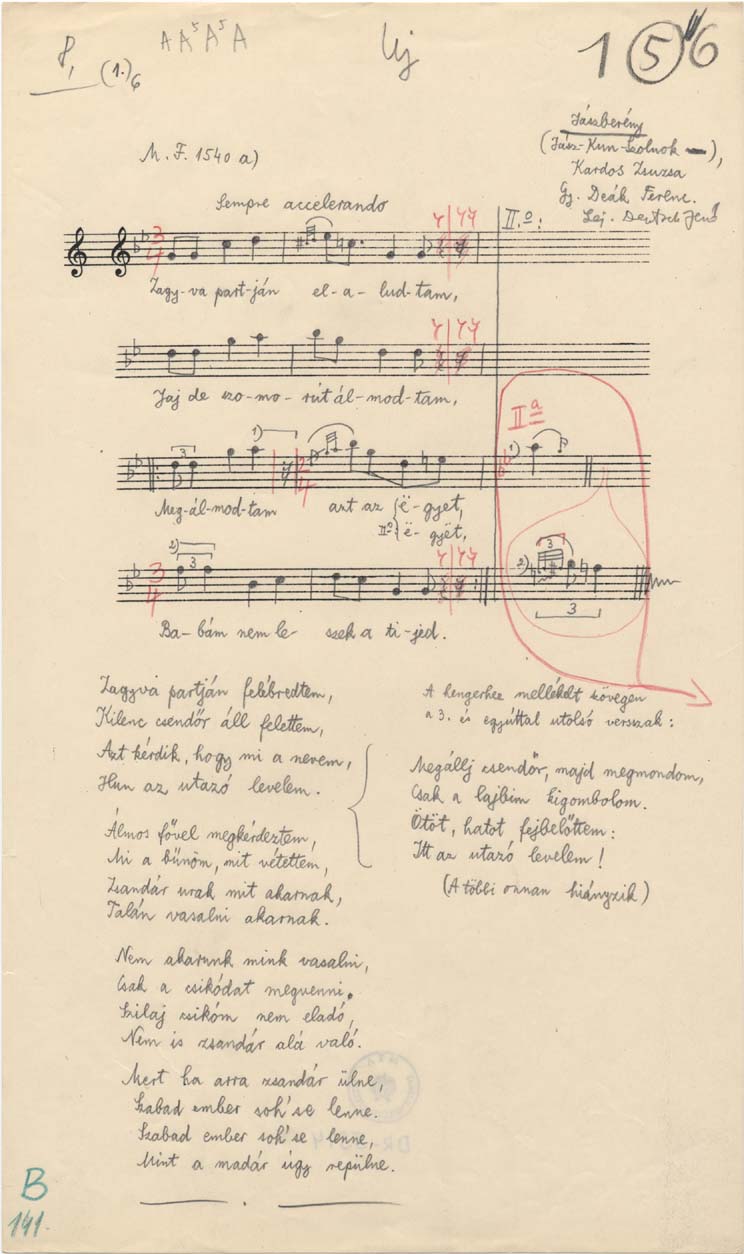 8,
(1.)6
A A⁵ A⁵ A
Uj
1 5 6
M. F. 1540 a)
Jászberény
(Jász-Kun-Szolnok),
Kardos Zsuzsa
Gy. Deák Ferenc.
Lej. Deutsch Jenő
Sempre accelerando
II.o:
3
4
Zagy-va part-ján el-a-lud-tam,
Jaj de szo-mo-rút ál-mod-tam,
IIa
3
1)
2
4
1)
Meg-ál-mod-tam azt az ë-gyet,
IIo: ë-gyët,
2)
3
3
4
2)
3
3
Ba-bám nem le szek a ti-jed.
Zagyva partján felébredtem,
Kilenc csendőr áll felettem,
Azt kérdik, hogy mi a nevem,
Hun az utazó levelem.
Álmos fővel megkérdeztem,
Mi a bűnöm, mit vétettem,
Zsandár urak mit akarnak,
Talán vasalni akarnak.
Nem akarunk mink vasalni,
Csak a csikódat megvenni.
Szilaj csikóm nem eladó,
Nem is zsandár alá való.
Mert ha arra zsandár ülne,
Szabad ember soh'se lenne.
Szabad ember soh'se lenne,
Mint a madár úgy repülne.
A hengerhez mellékelt szövegen
a 3. és egyúttal utolsó versszak:
Megállj csendőr, majd megmondom,
Csak a lajbim kigombolom.
Ötöt, hatot fejbelőttem:
Itt az utazó levelem!
(A többi onnan hiányzik)
B
141.